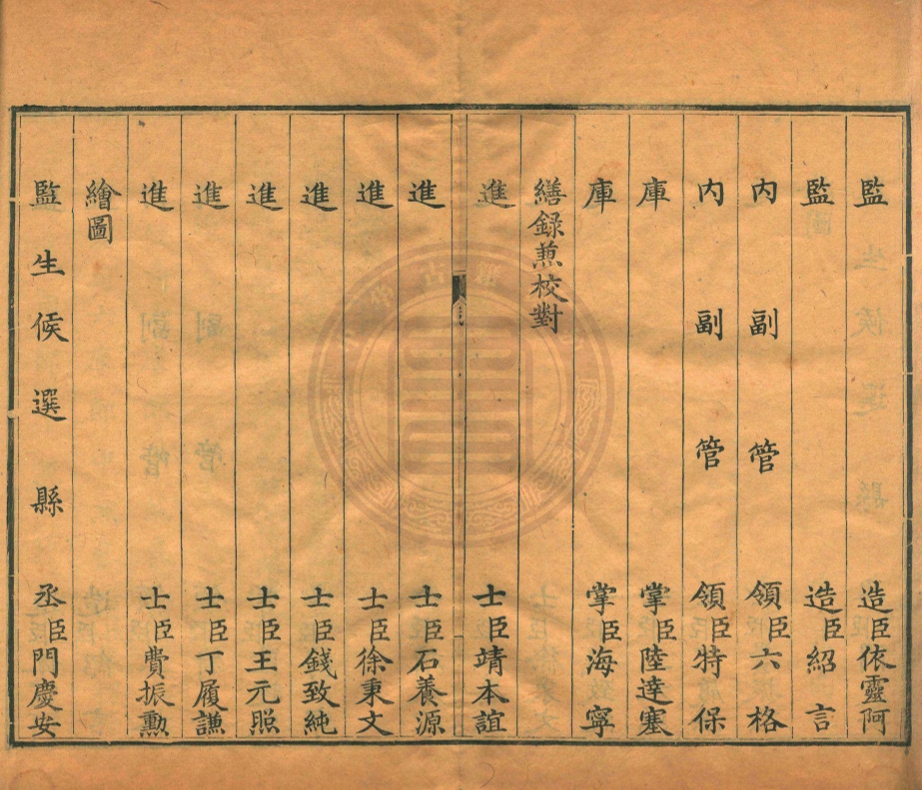 監造臣依靈阿
監造臣紹言
內副管領臣六格
內副管領臣特保
庫掌臣陸達塞
庫掌臣海寧
繕錄蒹校對
進士臣靖本誼
進士臣石養源
進士臣徐秉文
進士臣錢致純
進士臣王元照
進士臣丁履謙
進士臣費振勲
繪圖
監生候選縣丞臣門慶安